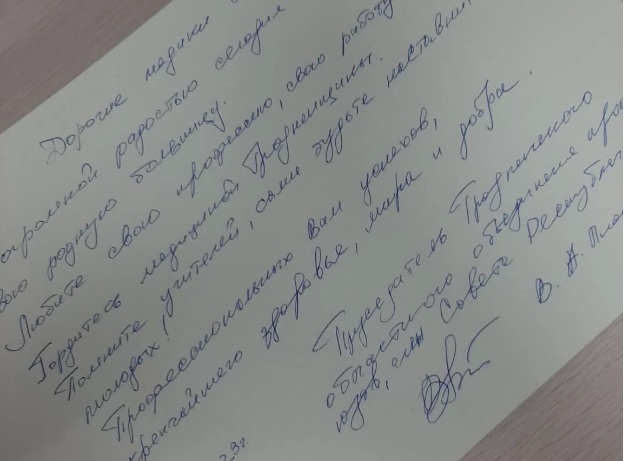 Дорогие медики
огромной радостью сегодня
свою родную больницу.
Любите свою профессию, свою работу
Гордитесь медициной Гродненщины.
Помните учителей, сами будьте наставни
молодых!
Профессиональных Вам успехов,
крепчайшего здоровья, мира и добра.
Председатель Гродненского
областного объединения проф
союзов, член Совета Республи
В. А.
23г.